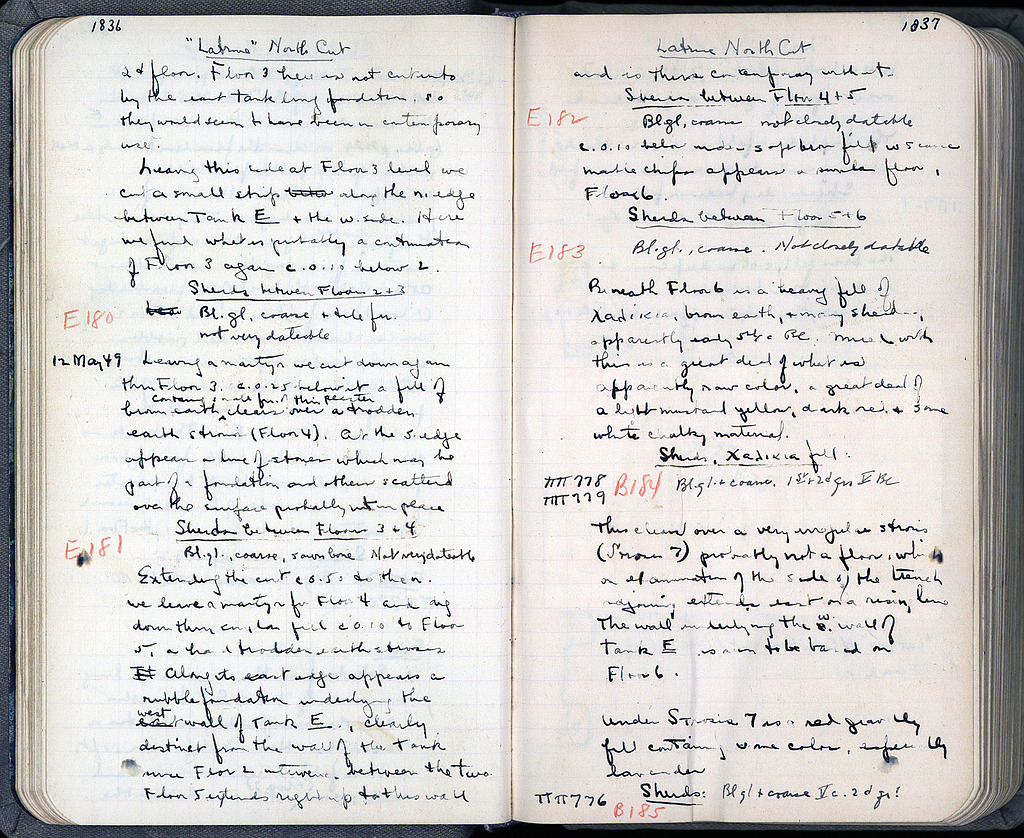 1836
"Latrine" North Cut
2d floor. Floor 3 here is not cut into
by the east Tank long foundation, so
they would seem to have been in contemporary
use.
Leaving this side at Floor 3 level we
cut a small strip below along the n. edge
between Tank E + the w. side. Here
we find what is probably a continuation
of Floor 3 again c. 0.10 below 2.
Sherds between Floor 2+3
E180 Bl. gl, coarse +
not very dateable
12 May 49 Leaving a martyr we cut down again
thru Floor 3. c. 0.25 below it a fill of
containing small frr. of thin
brown earth, clears over a trodden
earth stroma (Floor 4). At the s. edge
appears a line of stones which may be
part of a foundation and others scattered
over the surface probably not in place
Sherds between Floors 3+4
E181 Bl. gl., coarse, sawn bone Not very dateable
Extending the cut c 0.50 to the n.
we leave a martyr for Floor 4 and dig
down thru fill c 0.10 to Floor
5, a hard trodden earth stroma
Along its east edge appears a
rubble foundation underlying the
west
east wall of Tank E, clearly
distinct from the wall of the Tank
since Floor 2 intervenes between the two.
Floor 5 extends right up to this wall
1837
Latrine North Cut
and is thus contemporary with it.
Sherds between Floor 4+5
E182 Bl. gl, coarse not closely datable
c. 0.10 below under soft brown fill w some
marble chips appears a similar floor,
Floor 6
Sherds between Floor 5+6
E183 Bl. gl., coarse. Not closely datable
Beneath Floor 6 is a heavy fill of
χαλικια, brown earth, + many sherds,
apparently early 5th c BC. Mixed with
this is a great deal of what is
apparently raw color, a great deal of
a light mustard yellow, dark red, + some
white chalky material.
Sherds, χαλικια fill:
ΠΠ 778
ΠΠ 779 B184 Bl. gl. + coarse. 1st + 2d qrs V BC
This clears over a very irregular stroma
(Stroma 7) probably not a floor, which
on examination of the side of the trench
adjoining extends east on a rising line
The wall underlying the w. wall of
Tank E is seen to be based on
Floor 6.
Under Stroma 7 is a red gravelly
fill containing some color, especially
lavender
ΠΠ 776 Sherds: Bl gl + coarse V c. 2d qr?
B185